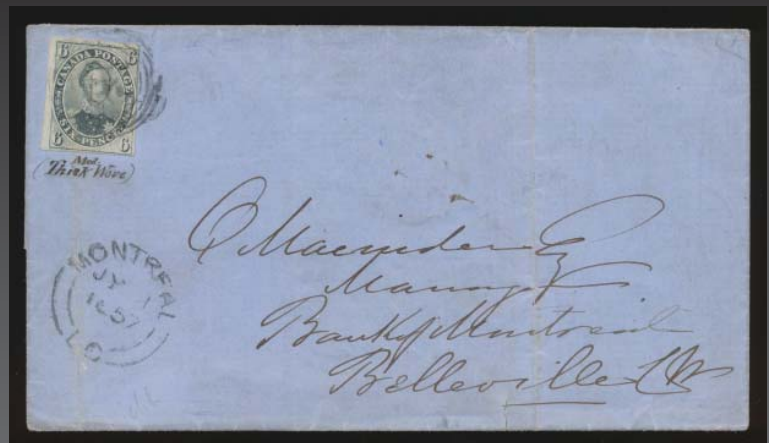 6 CANADA POSTAGE 6
6 SIX PENCE 6
Med.
(Thick Wove)
MONTREAL
JY 1
1857
L.C
Q Macnider Esq
Manager
Bank of Montreal
Belleville CW